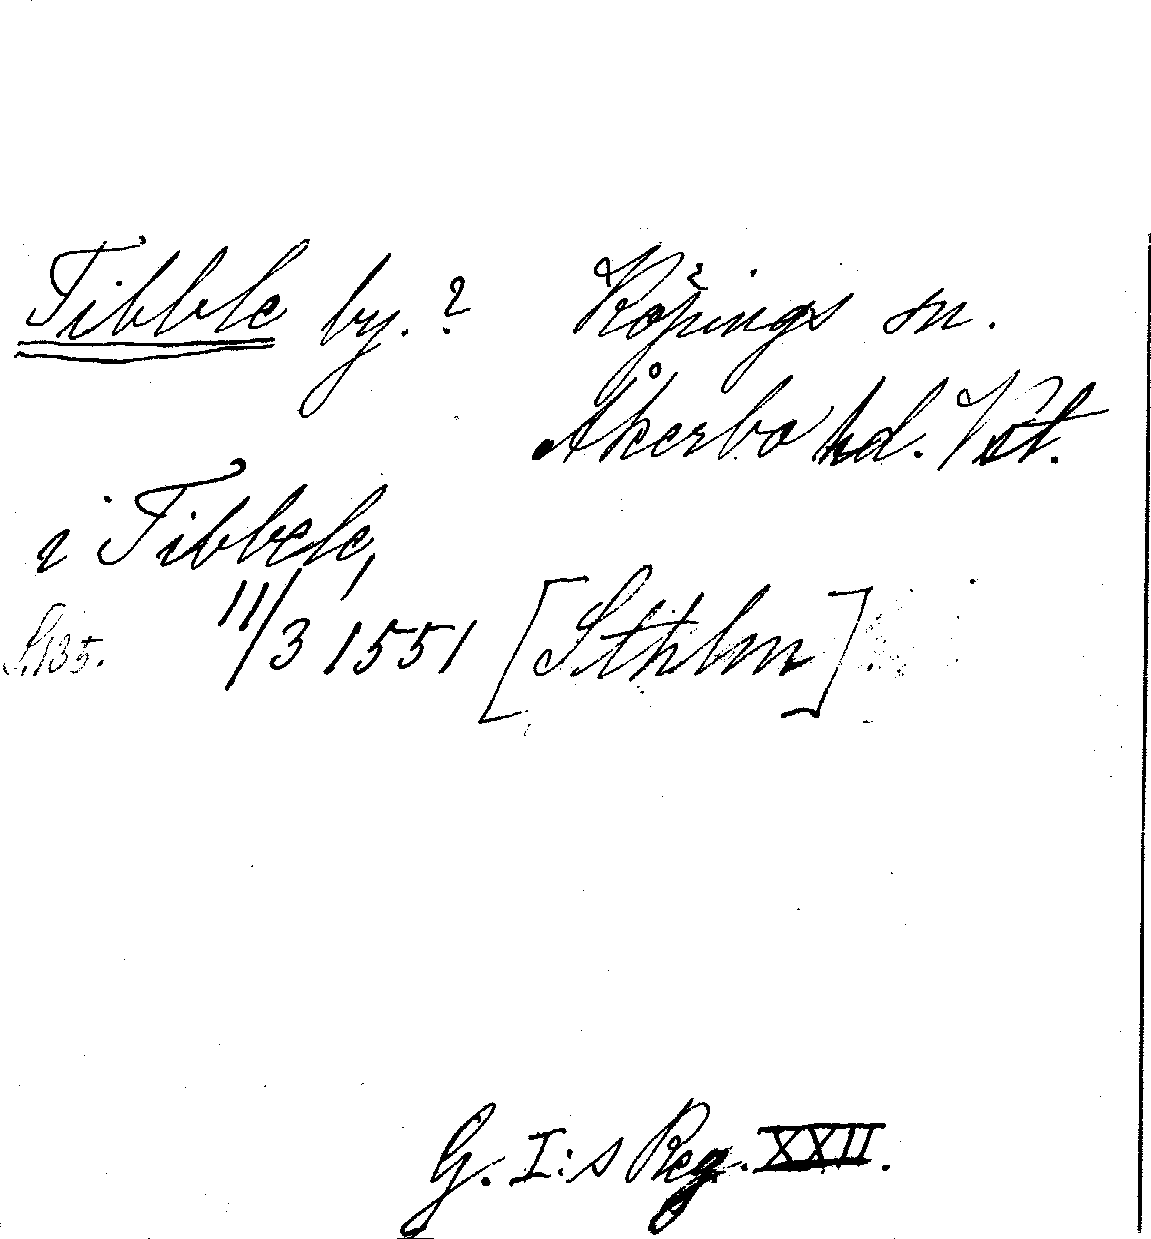 Tibble by.? Köpings sn.
Åkerbo hd. Vstm.
i Tibbele,
S. 135. 11/3 1551 [Sthlm]
G. I:s Reg. XXII.